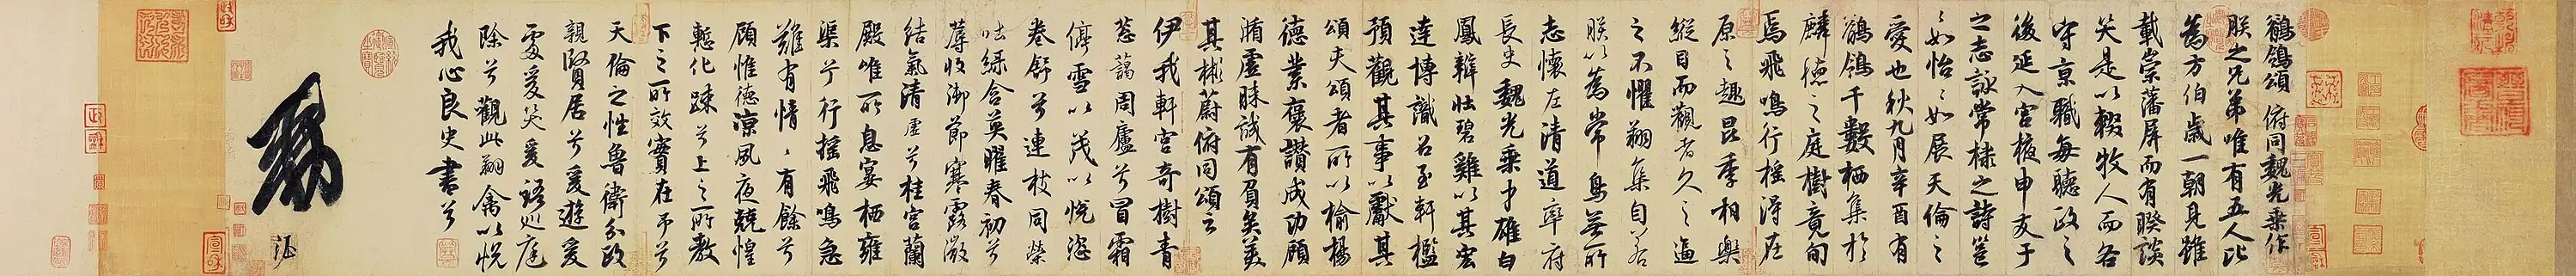 鶺鴒頌 俯同魏光乘作
朕之兄弟唯有五人比
為方伯歲一朝見雖
載崇藩屏而有睽談
笑是以輟牧人而各
守京職每聽政之
後延入宮掖申友于
之志詠常棣之詩邕
邕如怡怡如展天倫之
愛也秋九月辛酉有
鶺鴒千數栖集於
麟德之庭樹竟旬
焉飛鳴行搖得在
原之趣昆季相樂
縱目而觀者久之逼
之不懼翔集自若
朕以為常鳥無所
志懷左清道率府
長史魏光乘才雄白
鳳辯壯碧雞以其宏
達博識召至軒檻
預觀其事以獻其
頌夫頌者所以揄揚
德業褒讚成功顧
循虛昧誠有負矣美
其彬蔚俯同頌云
伊我軒宮奇樹青
蔥藹周廬兮冒霜
停雪以茂以悅恣
卷舒兮連枝同榮
吐綠含英曜春初兮
蓐收御節寒露微
結氣清虛兮桂宮蘭
殿唯所息宴栖雍
渠兮行搖飛鳴急
難有情情有餘兮
顧惟德涼夙夜兢惶
慙化踈兮上之所教
下之所效實在予兮
天倫之性魯衛分政
親賢居兮爰遊爰
處爰笑爰語巡庭
除兮觀此翔禽以悅
我心良史書兮
敕